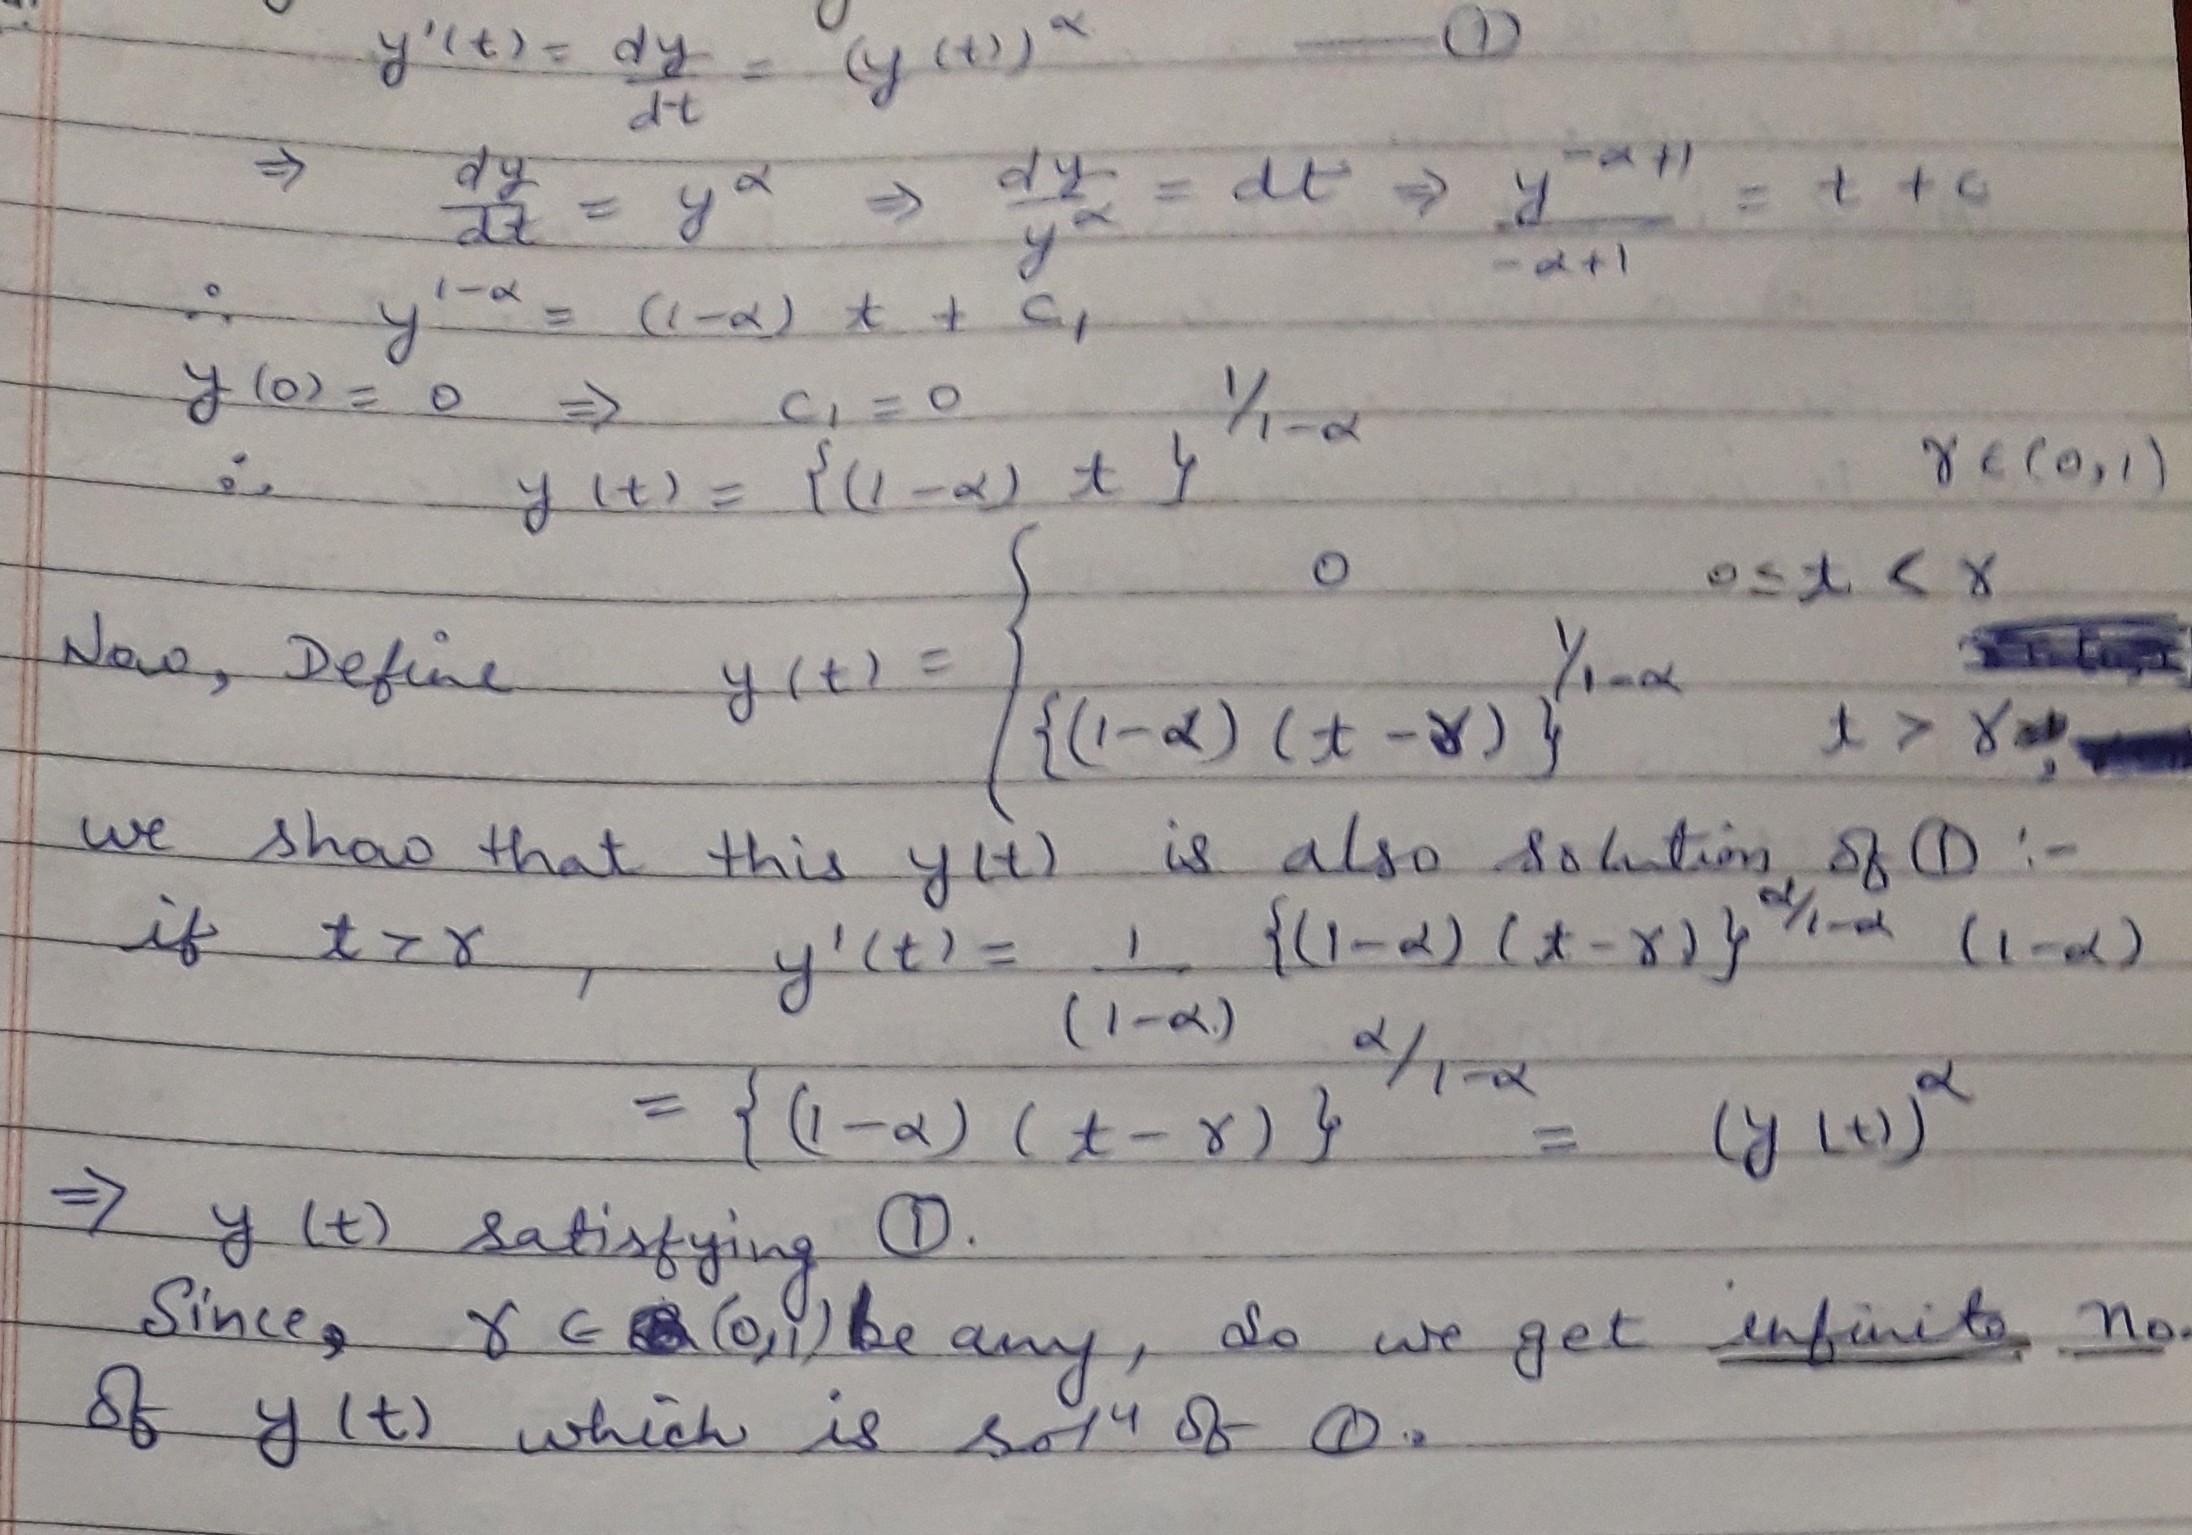 y'(t) = dy/dt = (y(t))^α ——— ①
⇒ dy/dt = y^α ⇒ dy/y^α = dt ⇒ y^(-α+1)/(-α+1) = t + c
∴ y^(1-α) = (1-α) t + c₁
y(0) = 0 ⇒ c₁ = 0
∴ y(t) = {(1-α) t}^(1/1-α) γ ∈ (0,1)
Now, Define y(t) = { 0 0 ≤ t < γ
{(1-α)(t-γ)}^(1/1-α) t > γ,
we show that this y(t) is also solution of ① :-
if t > γ, y'(t) = 1/(1-α) {(1-α)(t-γ)}^(α/1-α) (1-α)
= {(1-α)(t-γ)}^(α/1-α) = (y(t))^α
⇒ y(t) satisfying ①.
Since, γ ∈ (0,1) be any, so we get infinite no.
of y(t) which is solⁿ of ①.